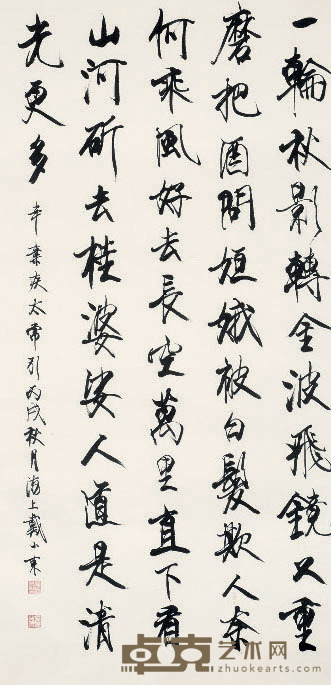 一輪秋影轉金波飛鏡又重
磨把酒問姮娥被白髮欺人奈
何乘風好去長空萬里直下看
山河斫去桂婆娑人道是清
光更多
辛棄疾太常引丙戌秋月海上戴小京
卓克艺术网
zhuokearts.com